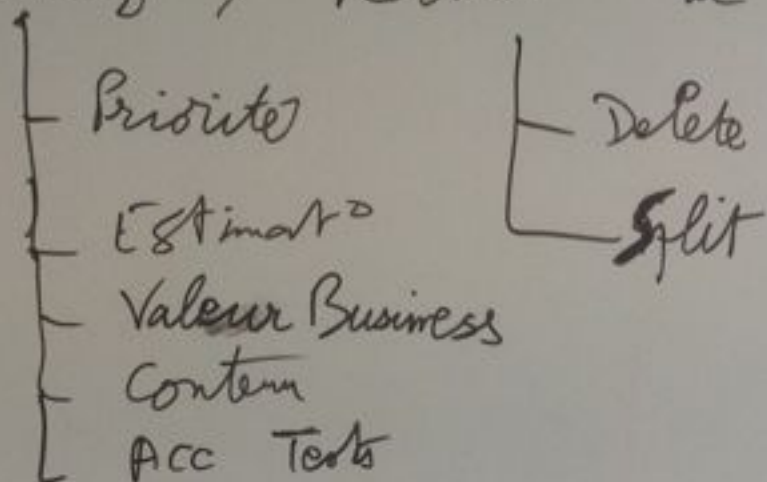 Priorité
Estimat°
Valeur Business
Contenu
Acc Tests
Delete
Split